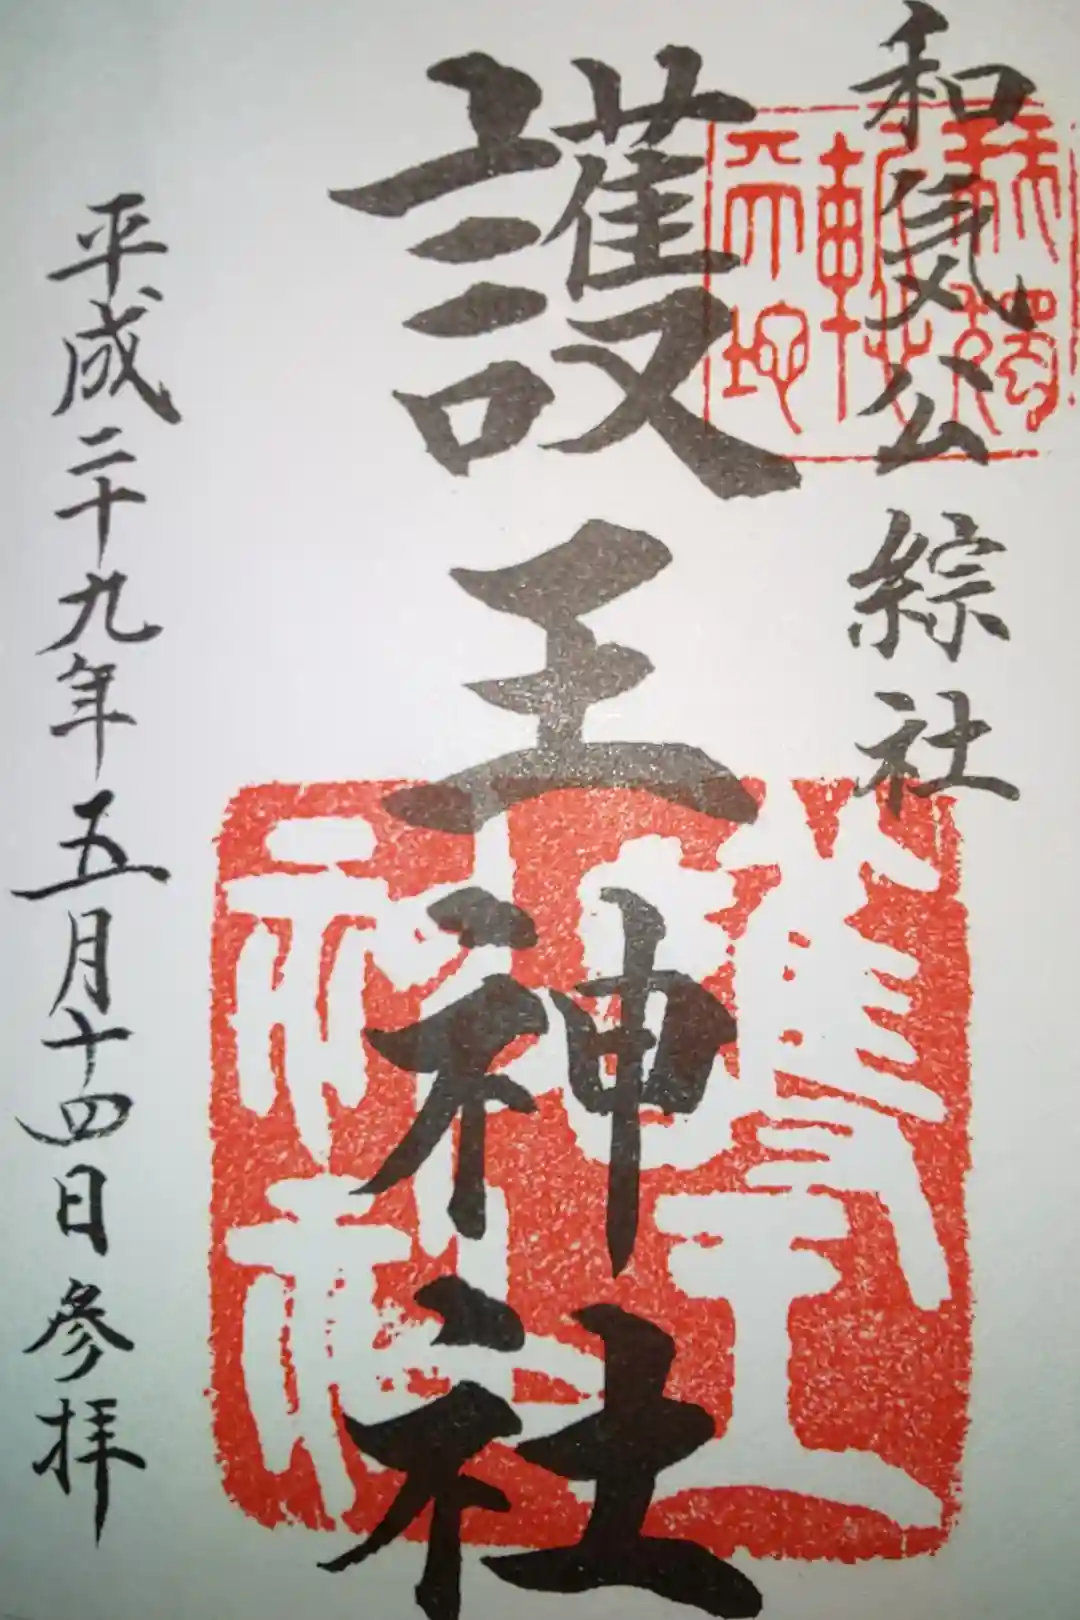 和気公綜社
護王神社
平成二十九年五月十四日参拝
護王神社